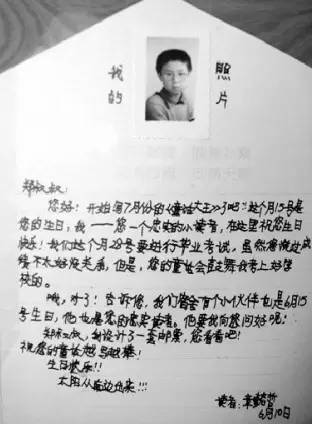 我的
照片
郑叔叔:
您好!开始写7月份的《童话大王》了吧?这个月15号是
您的生日,我——您一个忠实的小读者,在这里祝您生日
快乐!我们这个月28号要进行毕业考试,虽然您说过成
绩不太好没关系,但是,您的童话会鼓舞我考上好学
校的。
哦,对了!告诉您,我们有个小伙伴也是6月15
号生日,他也是您的忠实读者。他要我向您问好呢!
郑叔叔,我设计了一套邮票,您看看吧!
祝您的童话越写越棒!
生日快乐!!
太阳从西边出来!!!
读者:
6月10日